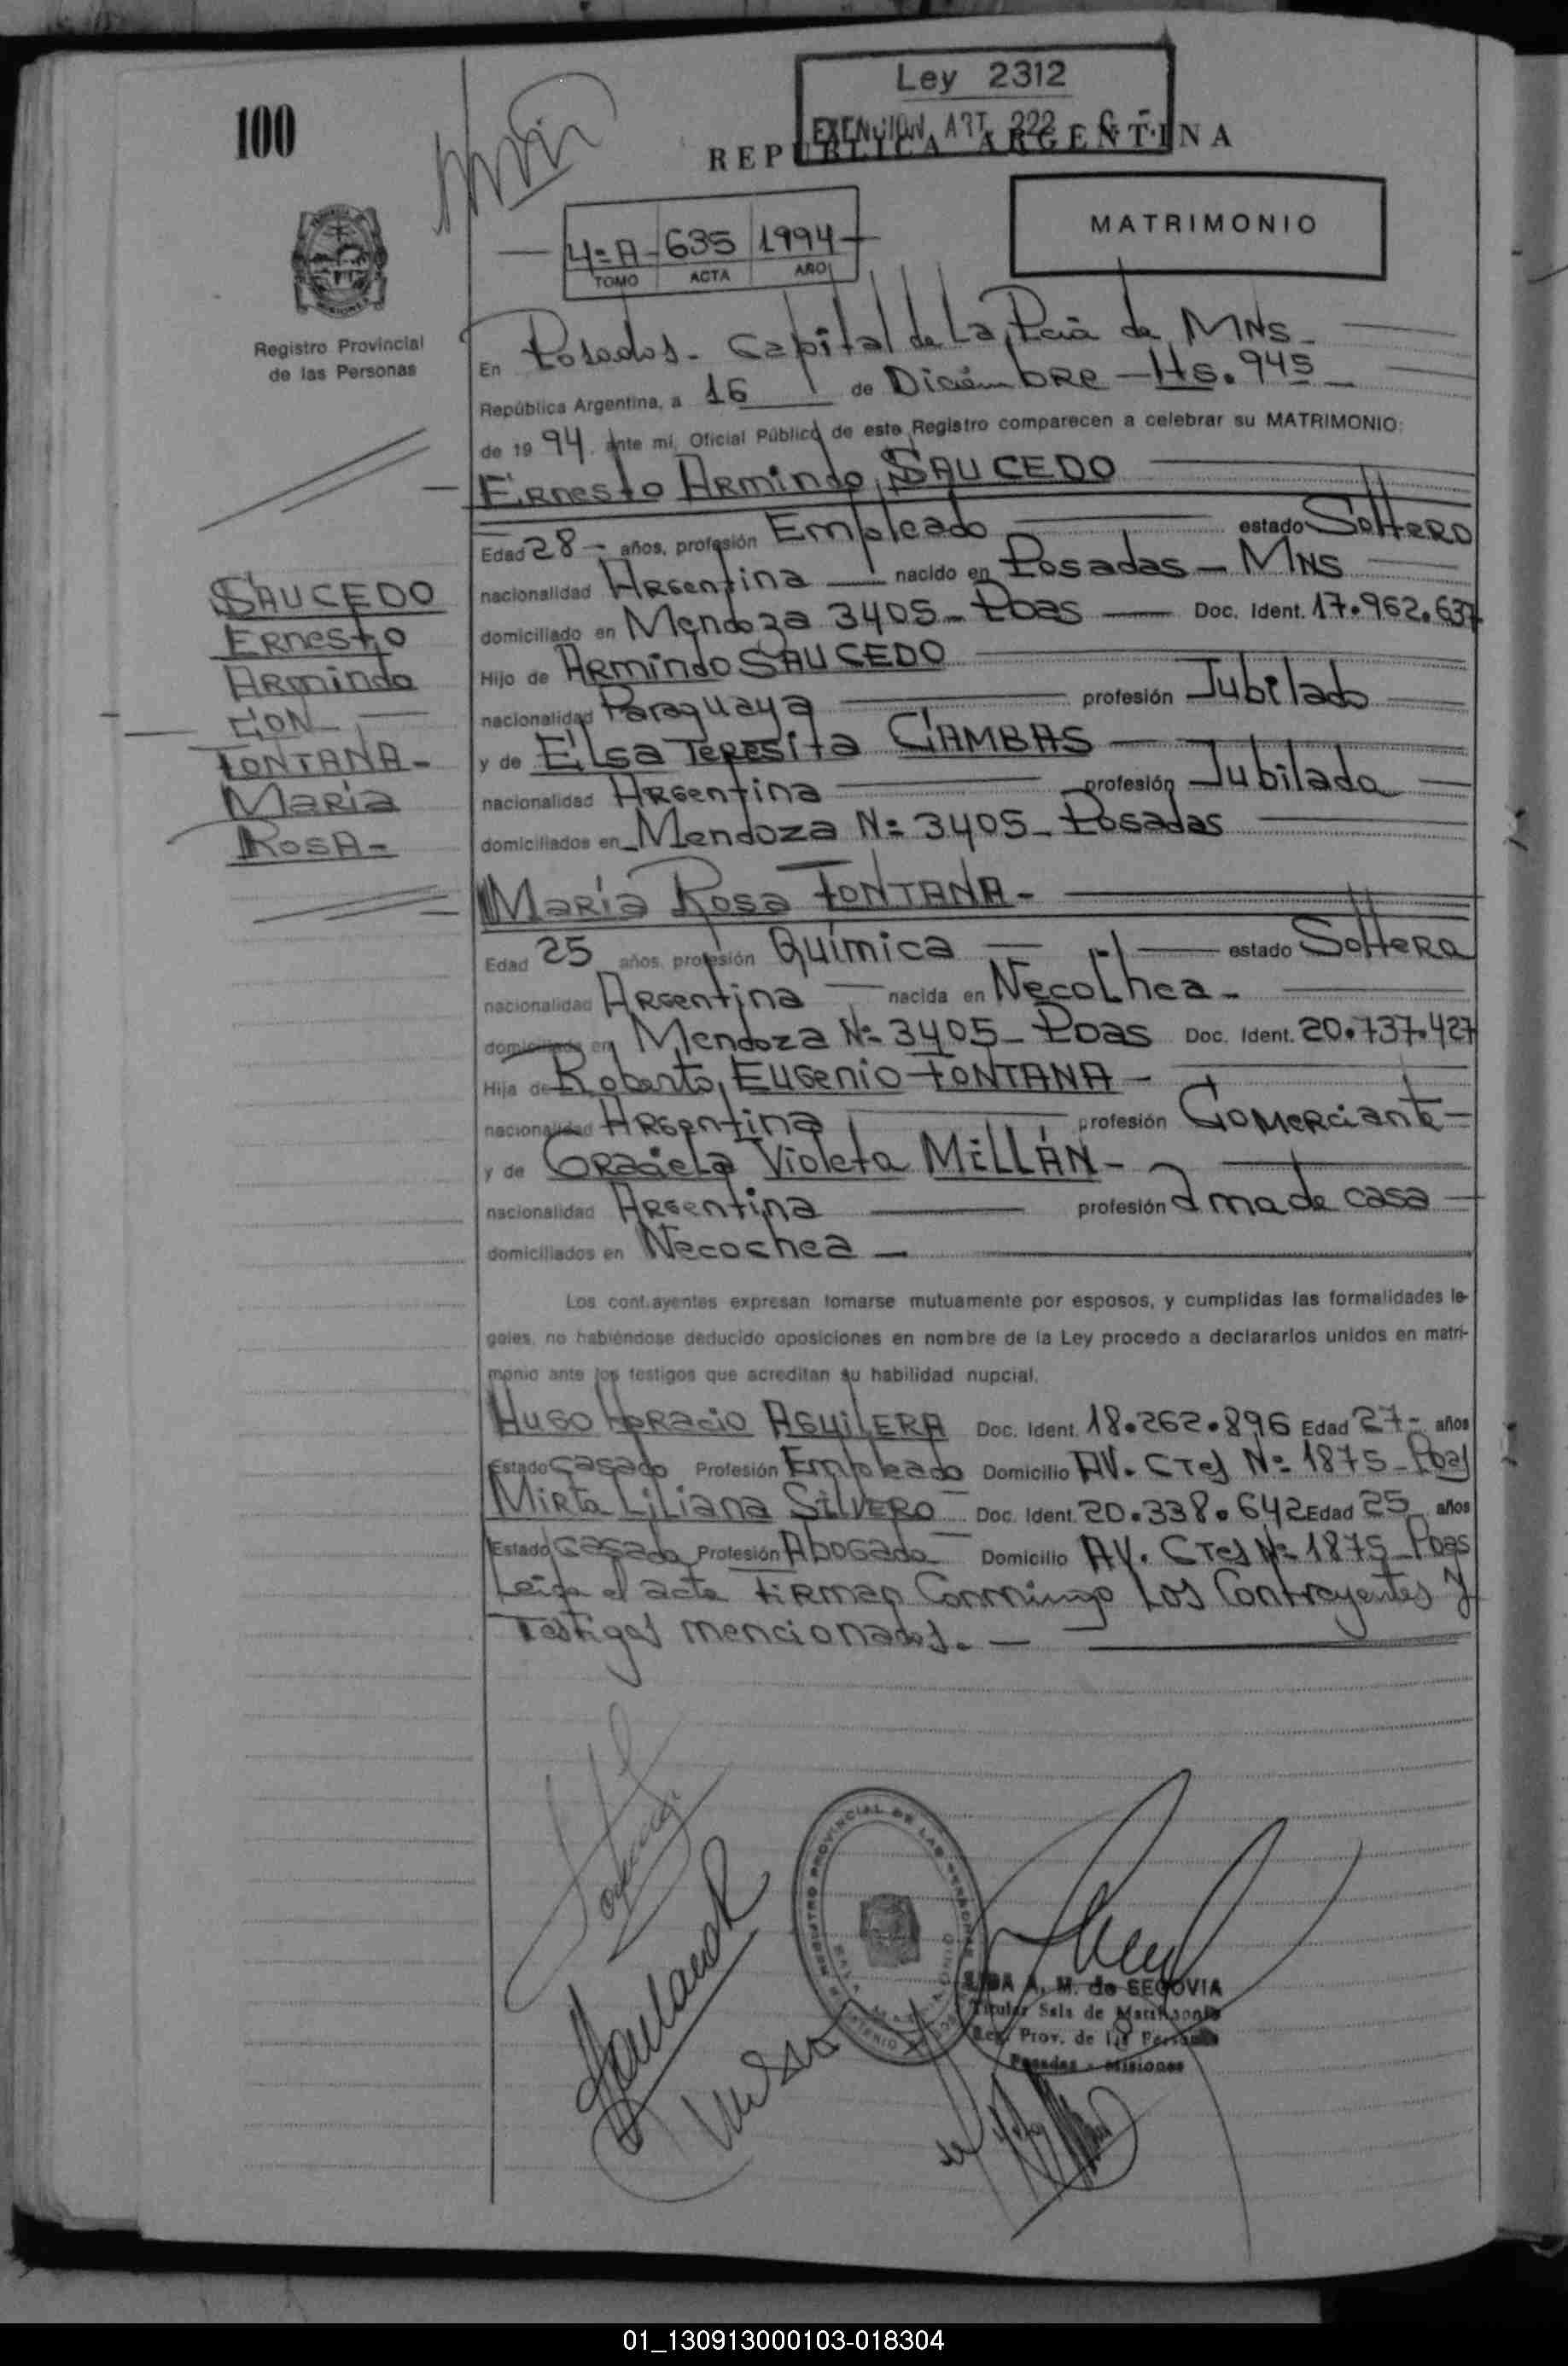 Ley 2312
EXENCION ART. 222
100
REPUBLICA ARGENTINA
MATRIMONIO
4=A - 635 1994
TOMO ACTA AÑO
Registro Provincial
de las Personas
En Posadas - Capital de La Pcia de MNS -
República Argentina, a 16 de Diciembre - Hs. 945
de 1994. ante mi, Oficial Público de este Registro comparecen a celebrar su MATRIMONIO:
Ernesto Armindo SAUCEDO
Edad 28 - años, profesión Empleado estado Soltero
nacionalidad Argentina nacido en Posadas - MNS
domiciliado en Mendoza 3405 - Pdas Doc. Ident. 17.962.637
Hijo de Armindo SAUCEDO
nacionalidad Paraguaya profesión Jubilado
y de Elsa Teresita CAMBAS
nacionalidad Argentina profesión Jubilada
domiciliados en Mendoza N= 3405 - Posadas
SAUCEDO
Ernesto
Armindo
CON
FONTANA -
María
Rosa -
María Rosa FONTANA -
Edad 25 años, profesión Química estado Soltera
nacionalidad Argentina nacida en Necochea -
domiciliada en Mendoza N= 3405 - Pdas Doc. Ident. 20.737.427
Hija de Roberto Eugenio FONTANA -
nacionalidad Argentina profesión Comerciante -
y de Graciela Violeta MILLÁN -
nacionalidad Argentina profesión Ama de casa
domiciliados en Necochea -
Los contrayentes expresan tomarse mutuamente por esposos, y cumplidas las formalidades le-
gales, no habiéndose deducido oposiciones en nombre de la Ley procedo a declararlos unidos en matri-
monio ante los testigos que acreditan su habilidad nupcial.
Hugo Horacio AGUILERA Doc. Ident. 18.262.896 Edad 27 - años
Estado Casado Profesión Empleado Domicilio AV. Ctes N= 1875 - Pdas
Mirta Liliana SILVERO Doc. Ident. 20.338.642 Edad 25 años
Estado Casada Profesión Abogada Domicilio AV. Ctes N= 1875 - Pdas
Leida el acta firman Conmingo Los Contrayentes y
Testigos mencionados. -
REGISTRO PROVINCIAL DE LAS PERSONAS
A. M. de SEGOVIA
Titular Sala de Matrimonio
Reg. Prov. de las Personas
Posadas - Misiones
01_130913000103-018304